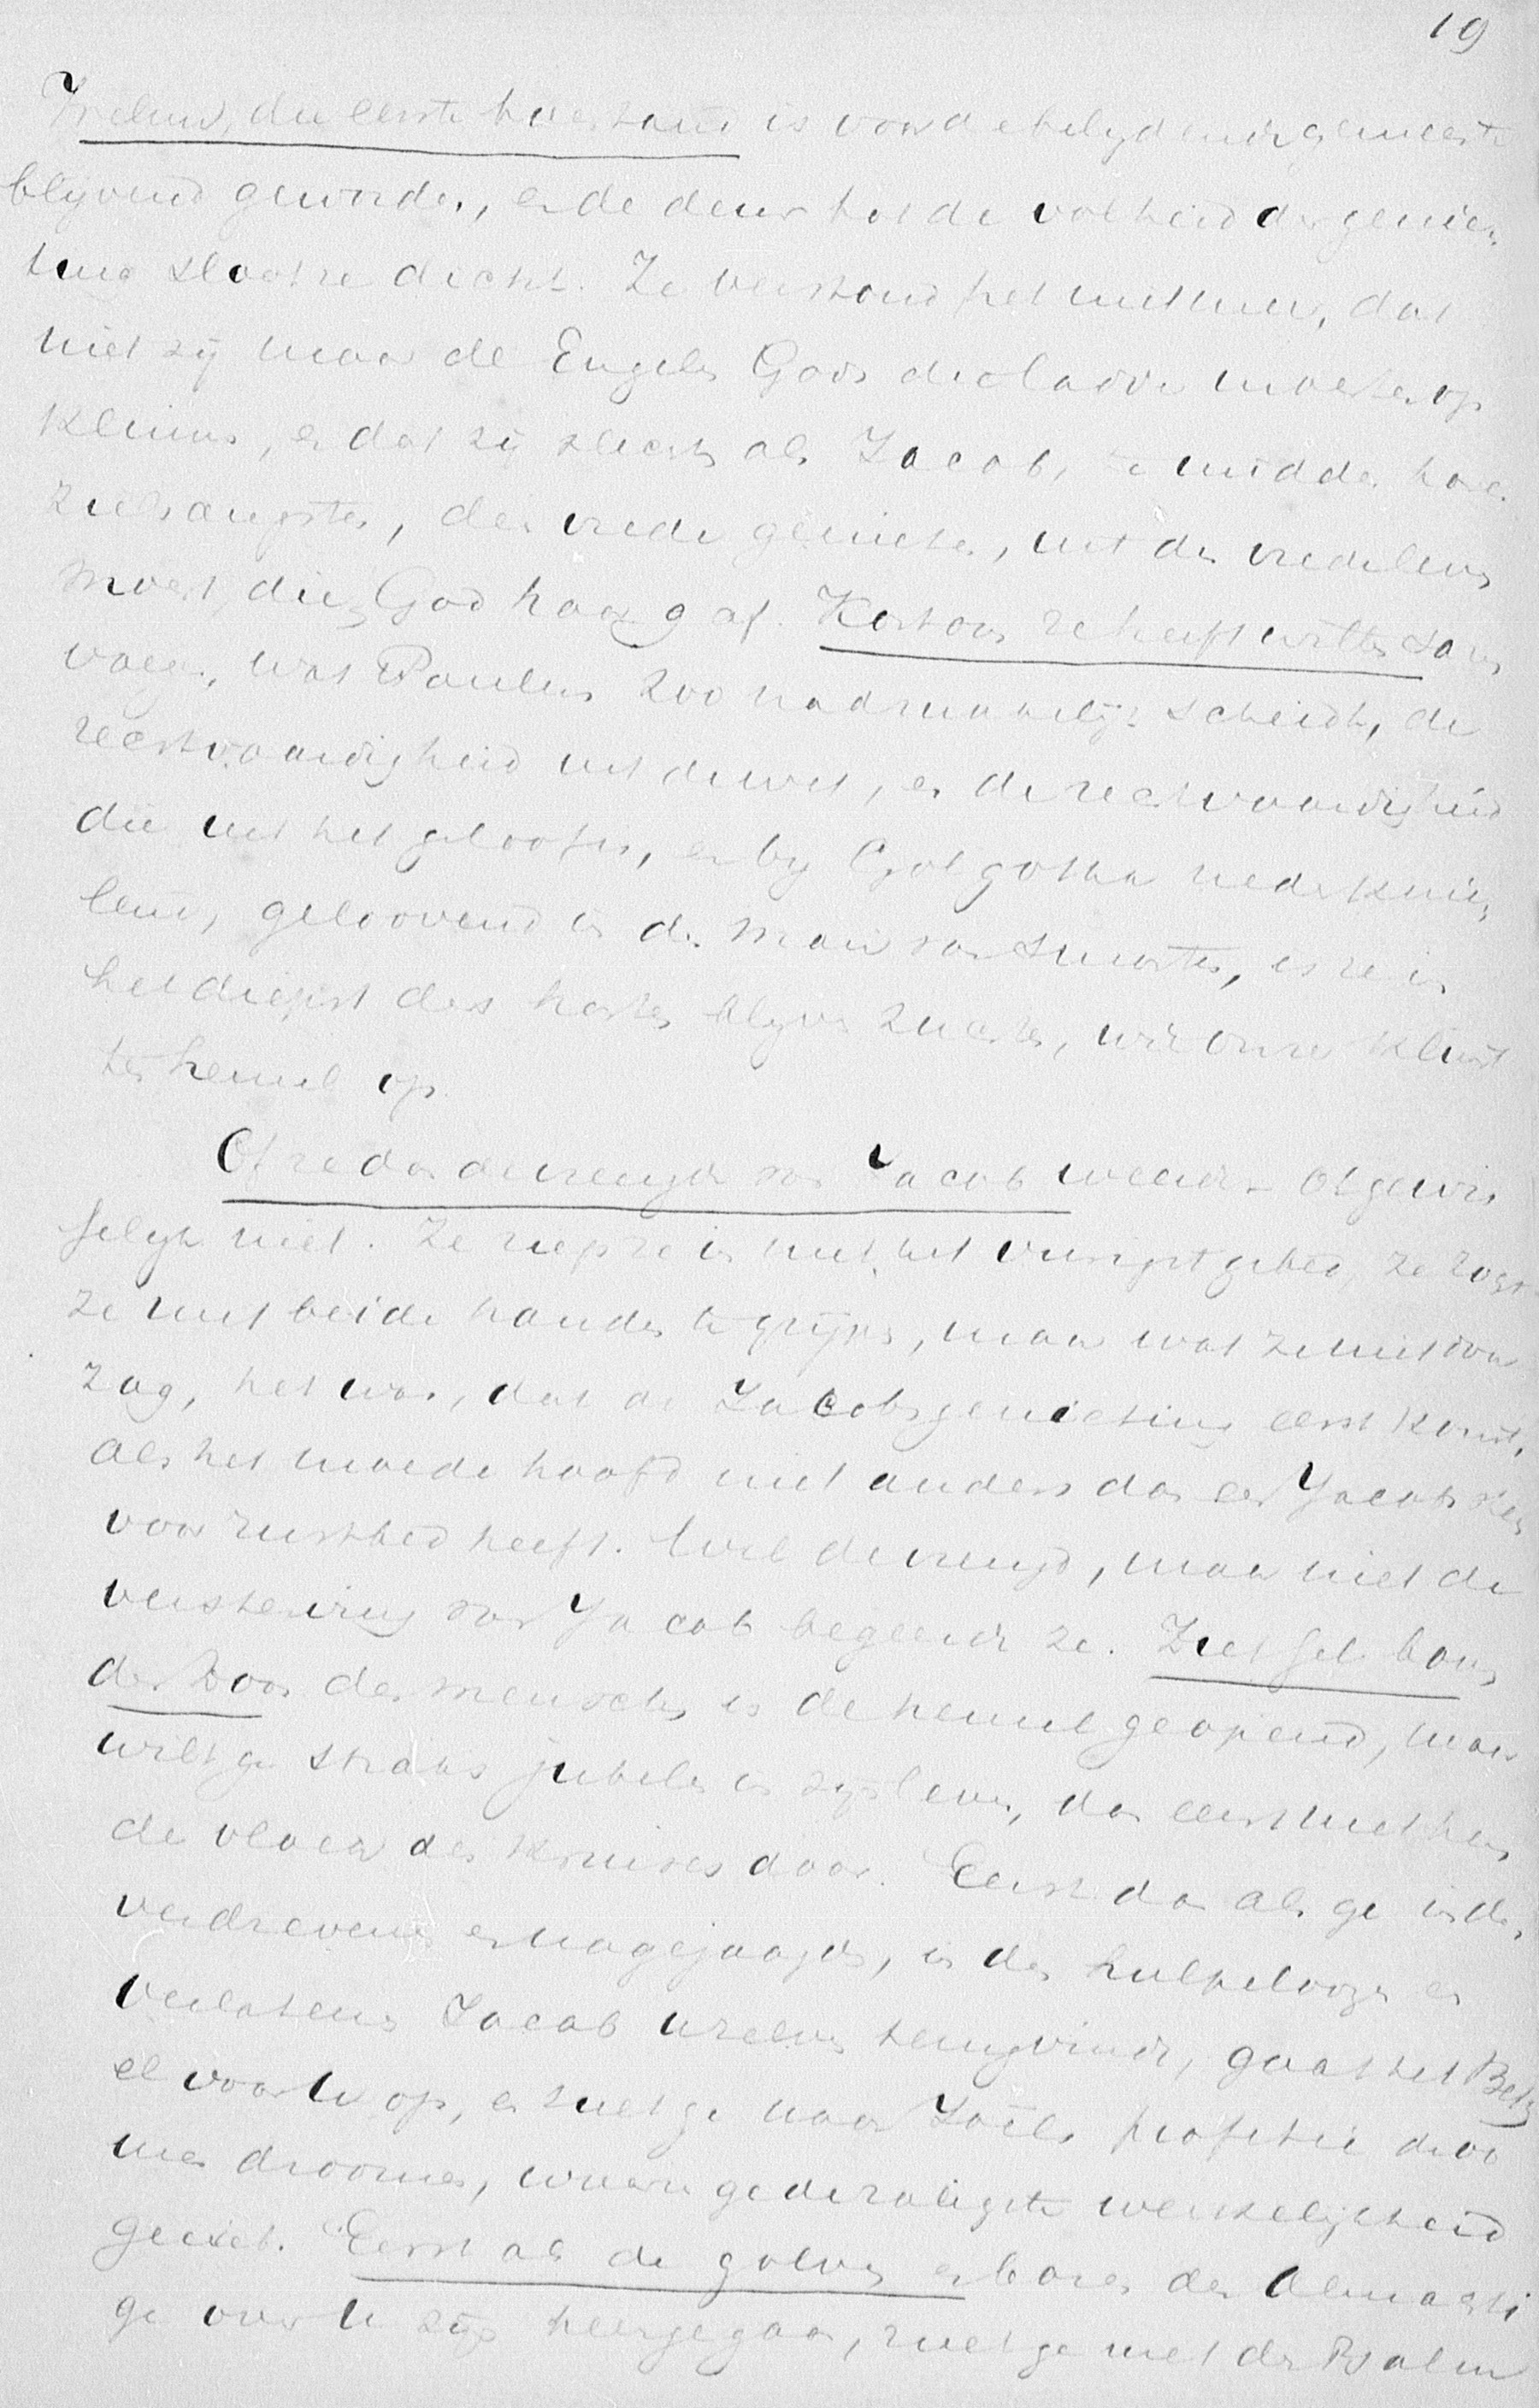 19
die eerste toestand is voor de belydende gemeente
blijvend geworden, en de deur tot de volheid der genie-
ting sloot ze dicht. Ze verstond het niet meer, dat
niet zij maar de Engelen Gods die ladder moeten op
klimmen, en dat zij slechts als Jacob, te midden harer
zielsangsten, den vrede genieten, uit den vredeleus
moest, dien God haar gaf. Kortom ze heeft willen samen
voegen, wat Paulus zoo nadrukkelijk scheidt, de
rechtvaardigheid uit de wet, en de rechtvaardigheid
die uit het geloof is, en by Golgotha nederknie-
lend, geloovend in den man van smarten, is ze in
het diepst des harten blyven zuchten, wie onzer klimt
ten hemel op
Of ze dan de vreugde van Jacob weerde – O gewis
selyk niet. Ze riep ze in met het vurigst gebed, ze zocht
ze met beide handen te grijpen, maar wat ze niet
zag, het was, dat de Jacobsgenieting eerst komt,
als het moede hoofd niet anders dan een Jacobs
voor rustbed heeft. Wel de vreugd, maar niet de
van Jacob begeerde ze. Ziet
den Zoon des menschen is de hemel geopend, maar
wilt ge straks jubelen in zijn leven, dan eerst met hem
de vloek des kruises door. Eerst dan als ge in den
verdrevene en nagejaagde, in den hulpelooze en
verlatene Jacob uzelven terugvindt, gaat het Beth-
el voor U op, en ziet ge naar Joëls profetie
men droomen, waarin ge de zaligste werkelijkheid
geniet. Eerst als de golven en baren des Almachti
ge over U zijn heengegaan, ziet ge met den Psalm